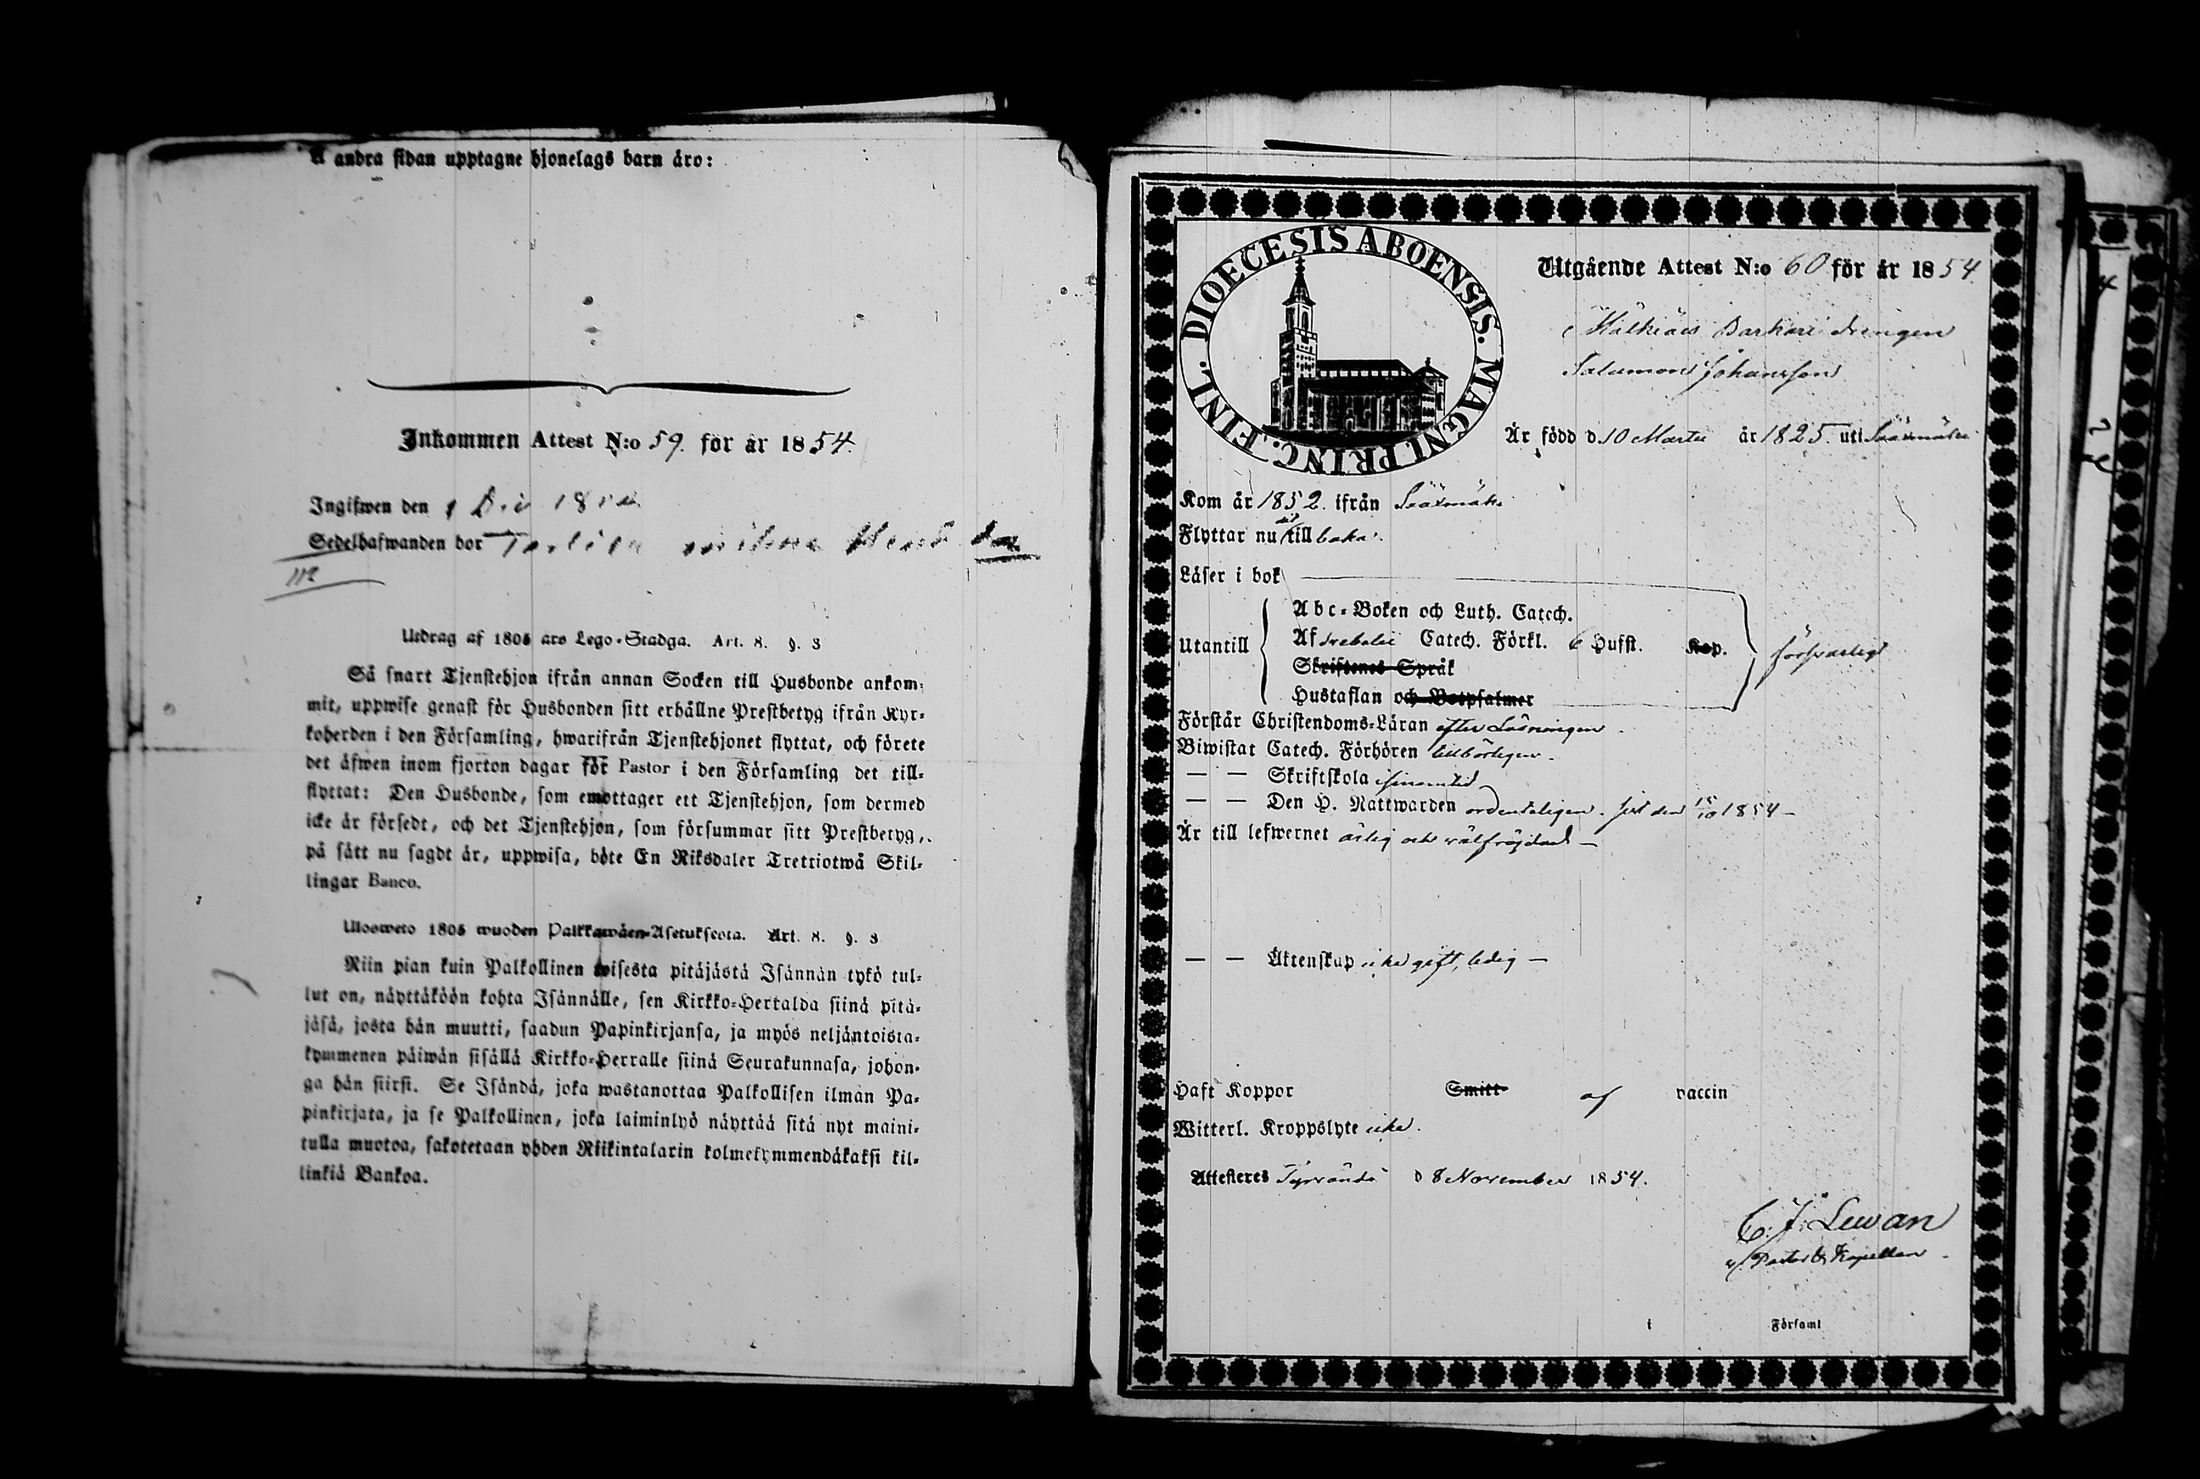 Å andra sidan upptagne hjonelags barn äro:
Inkommen Attest N:o 59. för år 1854.
Ingifwen den 1 18
Sedelhafwanden bor
112
Utdrag af 1805 års Lego-Stadga. Art. 8. §. 3
Så snart Tjenstehjon ifrån annan Socken till Husbonde ankom-
mit, uppwise genast för Husbonden sitt erhållne Prestbetyg ifrån Kyr-
koherden i den Församling, hwarifrån Tjenstehjonet flyttat, och förete
det äfwen inom fjorton dagar för Pastor i den Församling det till-
flyttat: Den Husbonde, som emottager ett Tjenstehjon, som dermed
icke är försedt, och det Tjenstehjon, som försummar sitt Prestbetyg,
på sätt nu sagdt är, uppwisa, böte En Riksdaler Trettiotwå Skil-
lingar Banco.
Ulosweto 1805 wuoden Palkkawäen-Asetuksesta. Art. 8. §. 3
Niin pian kuin Palkollinen toisesta pitäjästä Isännän tykö tul-
lut on, näyttäköön kohta Isännälle, sen Kirkko-Hertalda siinä pitä-
jäsä, josta hän muutti, saadun Papinkirjansa, ja myös neljäntoista-
kymmenen päiwän sisällä Kirkko-Herralle siinä Seurakunnasa, johon-
ga hän siirsi. Se Isändä, joka wastanottaa Palkollisen ilman Pa-
pinkirjata, ja se Palkollinen, joka laiminlyö näyttää sitä nyt maini-
tulla muotoa, sakotetaan yhden Riikintalarin kolmekymmendäkaksi kil-
linkiä Bankoa.
DIOECESIS ABOENSIS. MAGNI PRINC. FINL.
Utgående Attest N:o 60 för år 1854
Drengen
Salomon Johansson
Är född d 10 Martii år 1825. uti Sääxmäki
Kom år 1852. ifrån Sääxmäki
Flyttar nu dit tillbaka.
Läser i bok
Utantill
Abc-Boken och Luth. Catech.
Af Svebelii Catech. Förkl. 6 Hufst. Kap.
Skriftenes Språk
Hustaflan och Botpsalmer
försvarligt
Förstår Christendoms-Läran efter Läsningen
Biwistat Catech. Förhören tillbörligen.
— — Skriftskola i sinom tid
— — Den H. Nattwarden ordenteligen. sist den 15/10 1854 —
Är till lefwernet ärlig och välfräjdad —
— — Äktenskap icke gift, ledig —
Haft Koppor Smitt- af vaccin
Witterl. Kroppslyte icke.
Attesteras Tyrvändö d 8 November 1854.
C. J. Lewan
v. Pastor & Kapellan.
i Församl